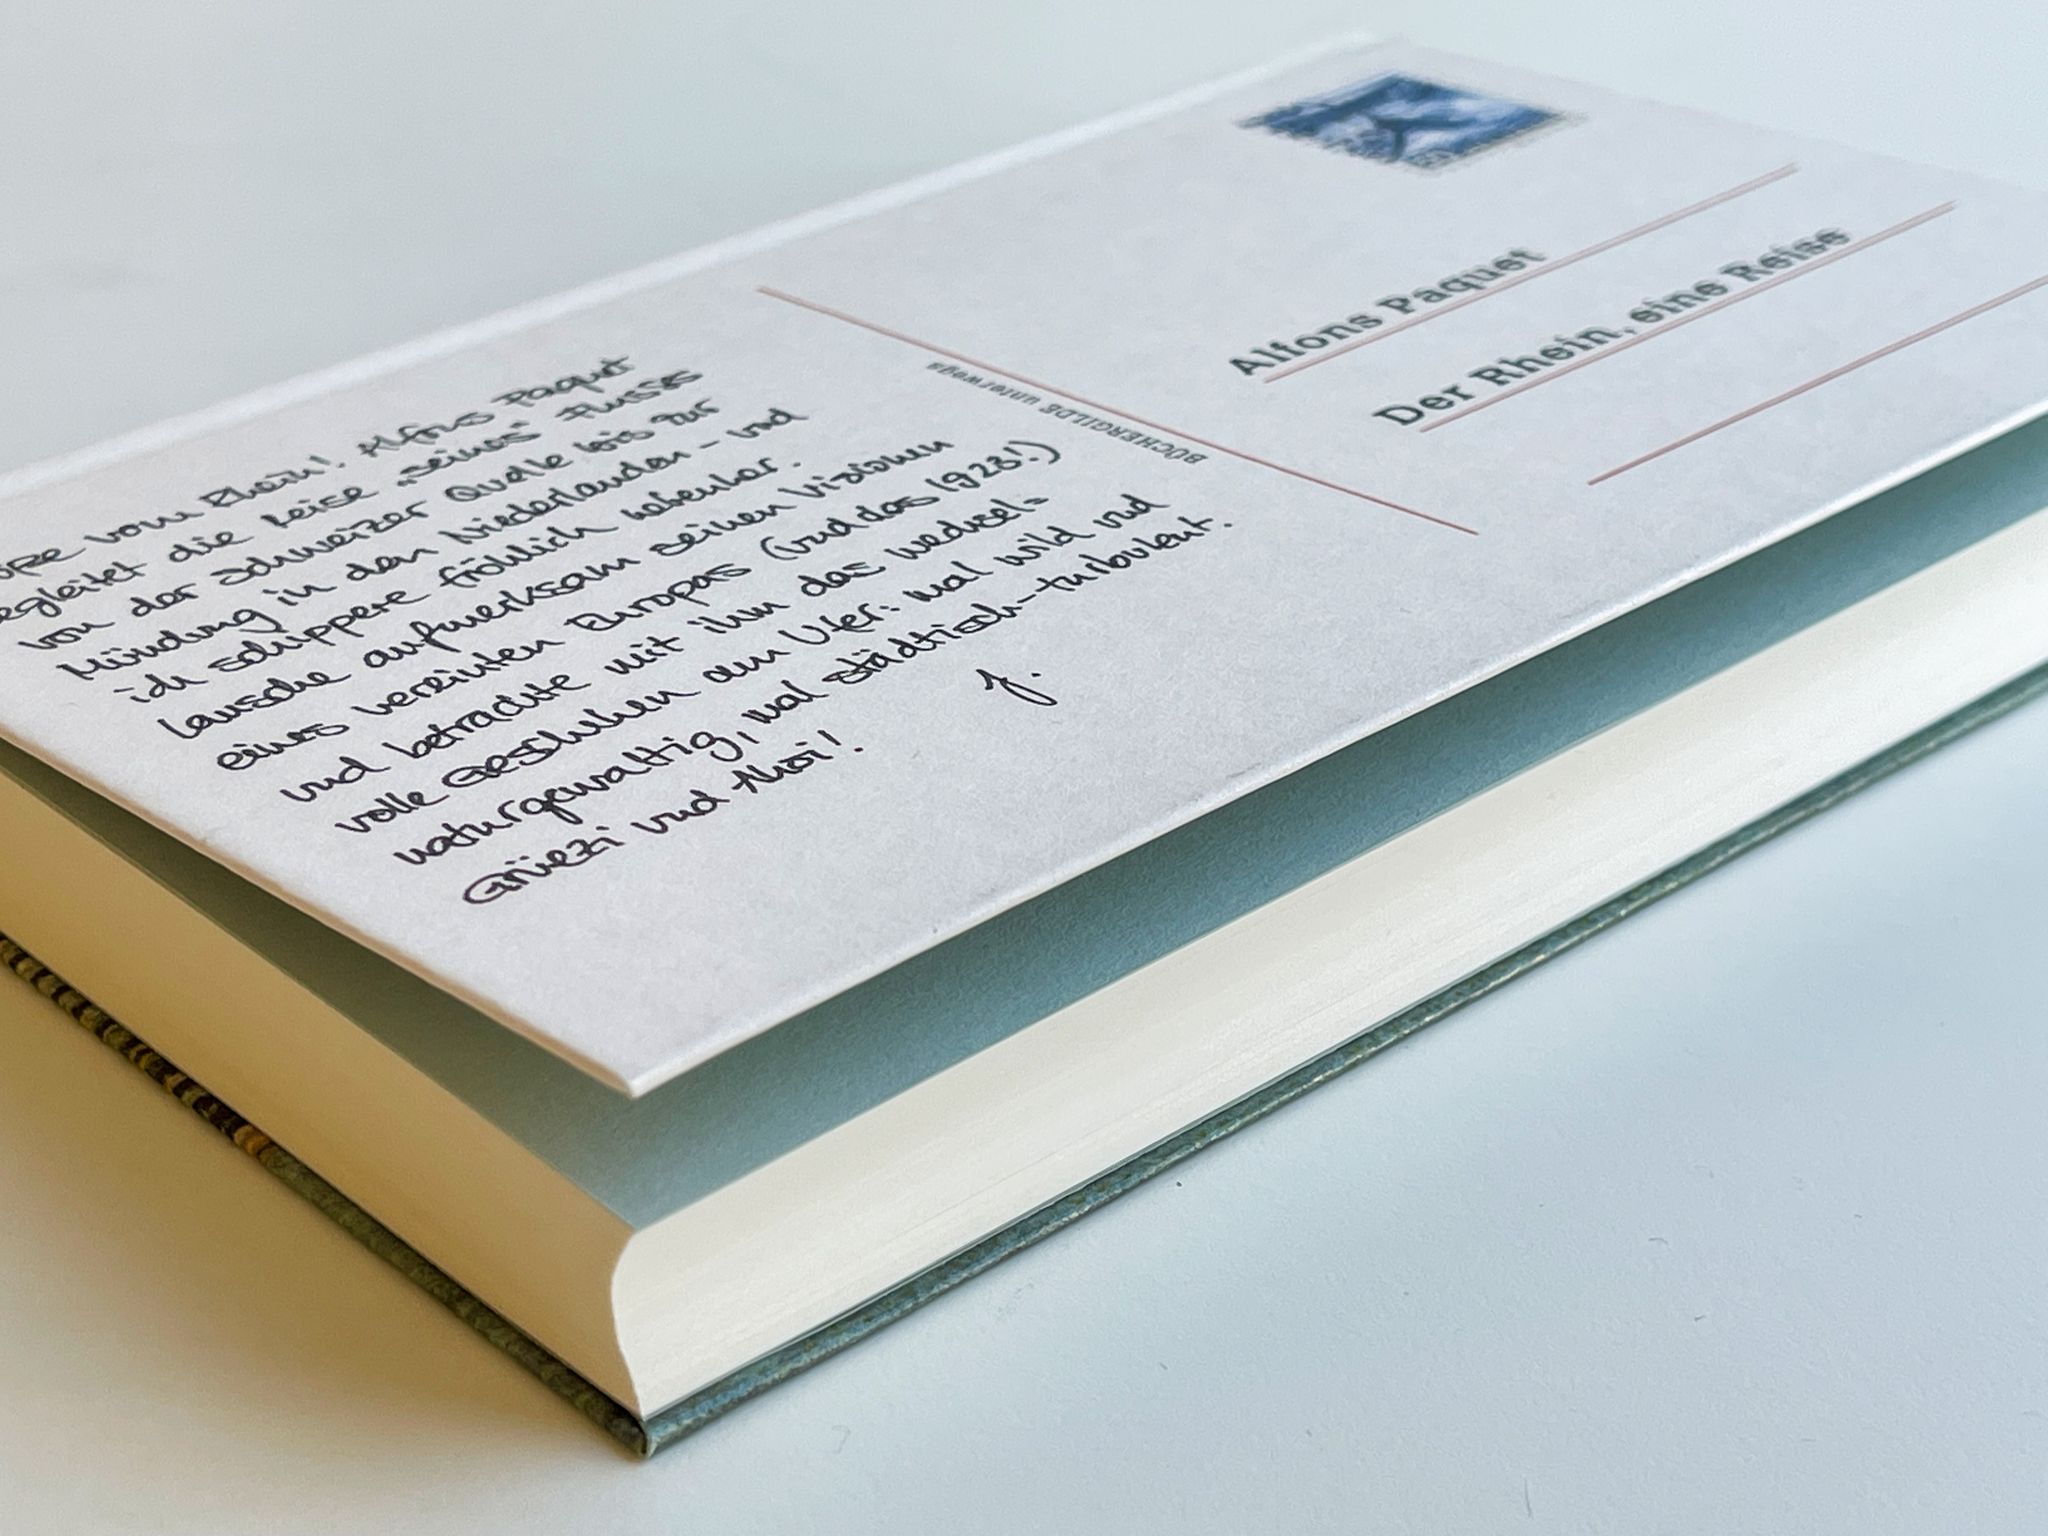 vom Rhein! Alfons Paquet
begleitet die Reise „seines“ Flusses
von der Schweizer Quelle bis zur
Mündung in den Niederlanden – und
ich schippere fröhlich nebenher.
Lausche aufmerksam seinen Visionen
eines vereinten Europas (und das 1923!)
und betrachte mit ihm das wechsel=
volle Geschehen am Ufer: mal wild und
naturgewaltig, mal städtisch-turbulent.
Grüezi und Ahoi!
J.
BÜCHERGILDE unterwegs
Alfons Paquet
Der Rhein, eine Reise